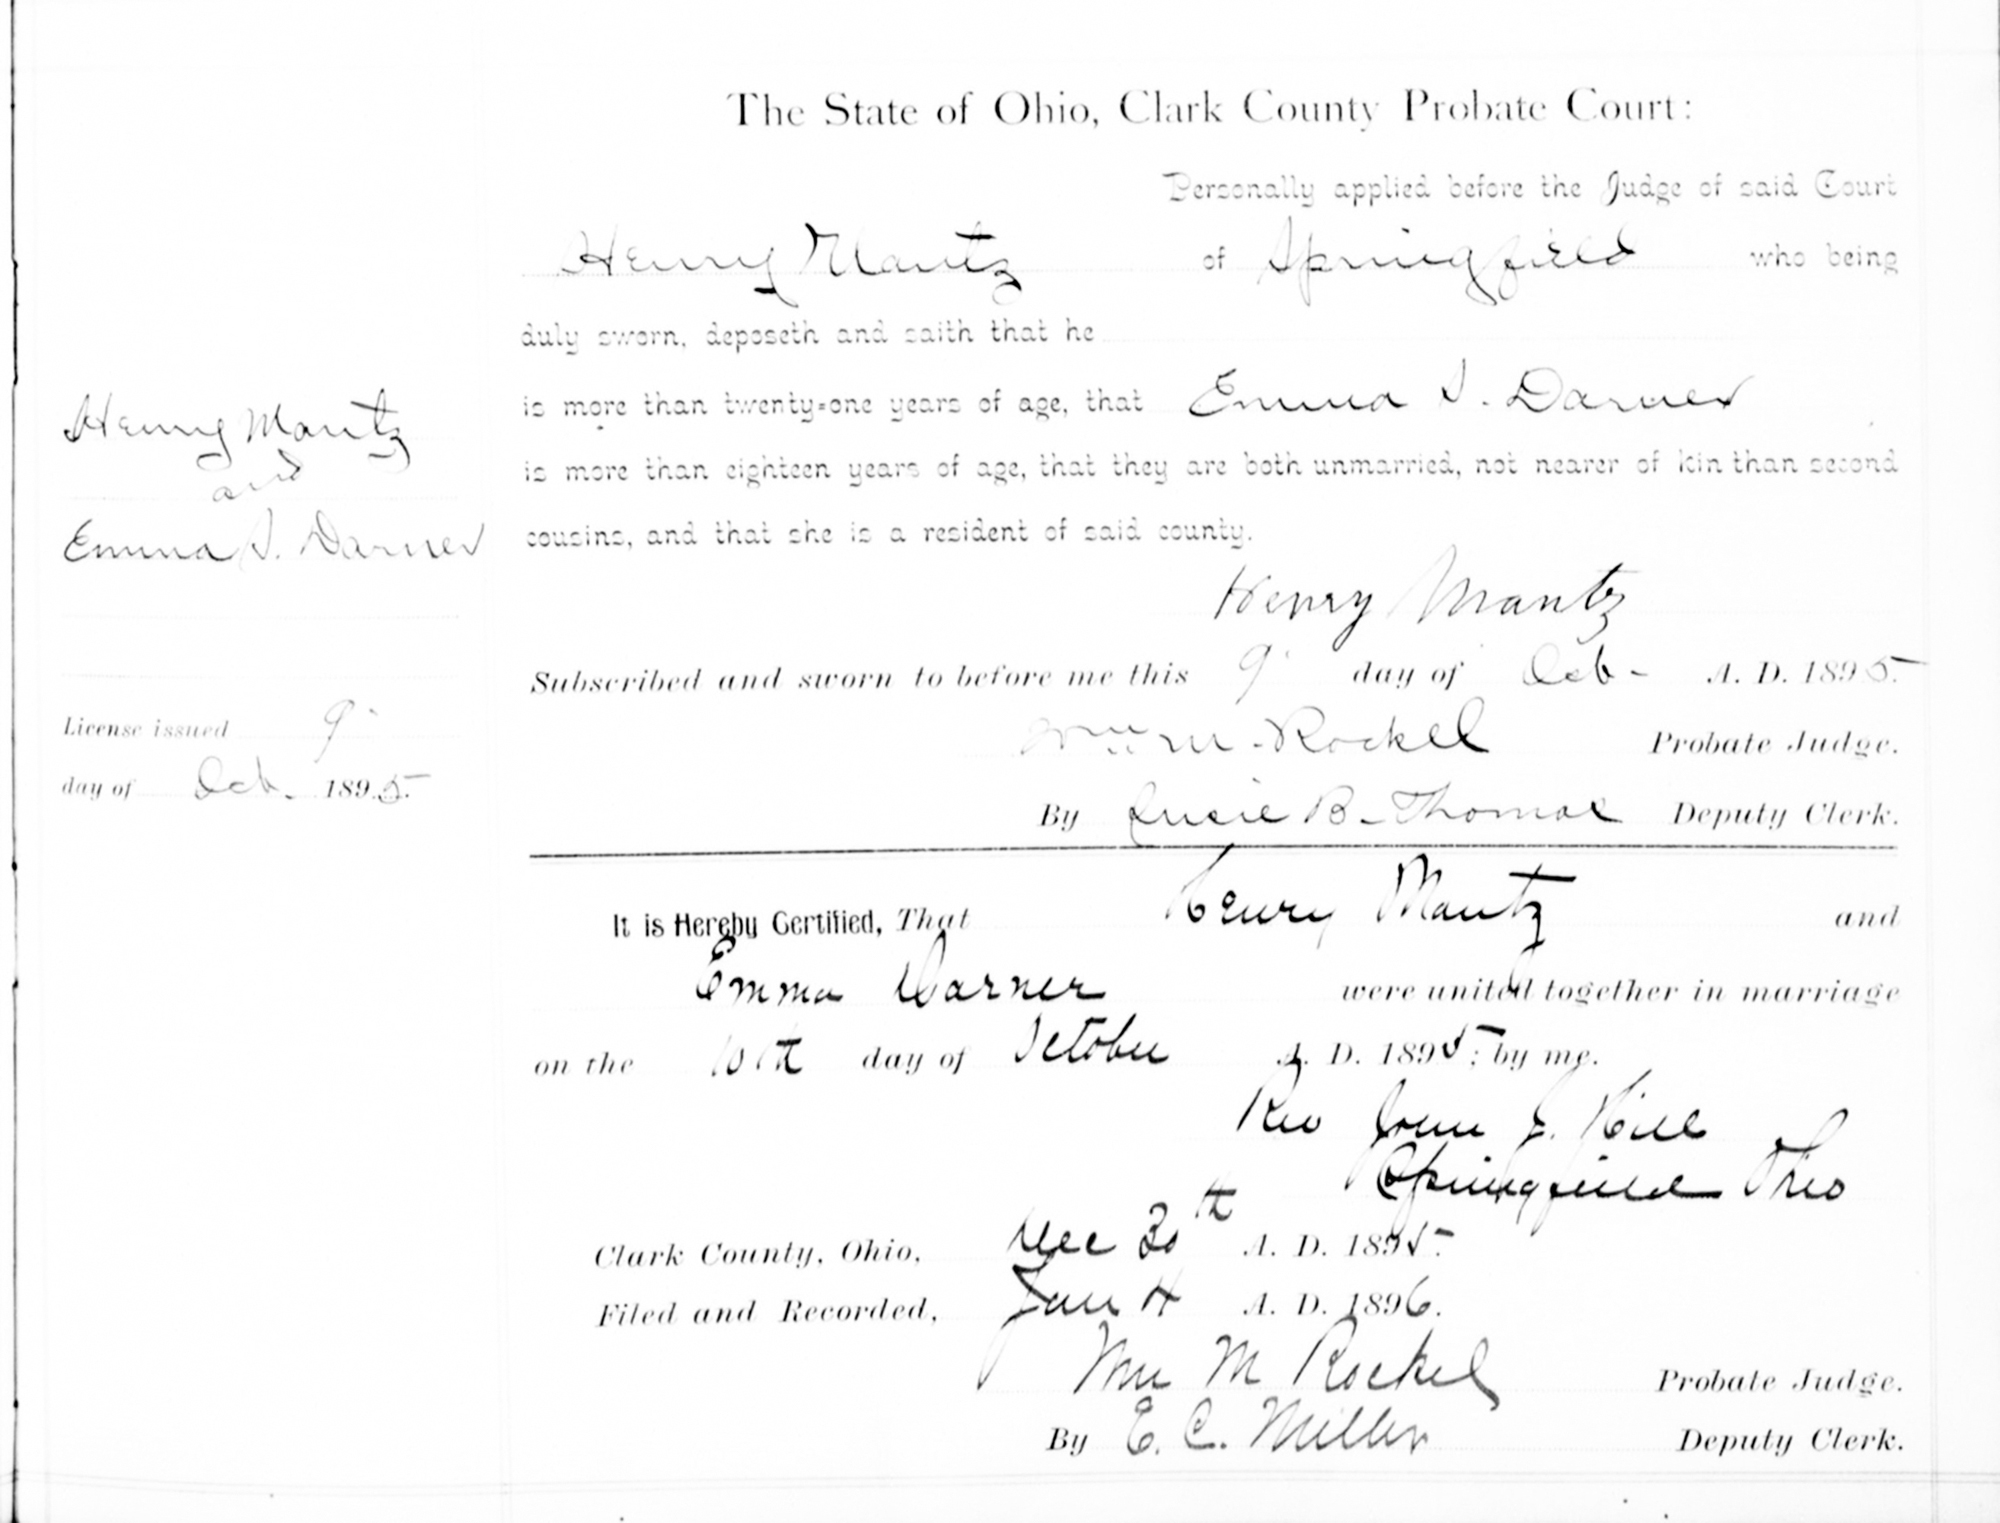 The State of Ohio, Clark County Probate Court:
Personally applied before the Judge of said Court
Henry Mantz of Springfield who being
duly sworn, deposeth and saith that he
is more than twenty-one years of age, that Emma S. Darner
is more than eighteen years of age, that they are both unmarried, not nearer of kin than second
cousins, and that she is a resident of said county.
Henry Mantz
Subscribed and sworn to before me this 9" day of Oct- A. D. 1895.
Wm M. Rockel Probate Judge.
By Lucie B. Thomas Deputy Clerk.
Henry Mantz
and
Emma S. Darner
License issued 9"
day of Oct. 1895.
It is Hereby Certified, That Henry Mantz and
Emma Darner were united together in marriage
on the 10th day of October A. D. 1895; by me.
Rev John J. Hill
Springfield Ohio
Clark County, Ohio, Dec 30th A. D. 1895.
Filed and Recorded, Jan 4 A. D. 1896.
Wm M Rockel Probate Judge.
By E. C. Miller Deputy Clerk.